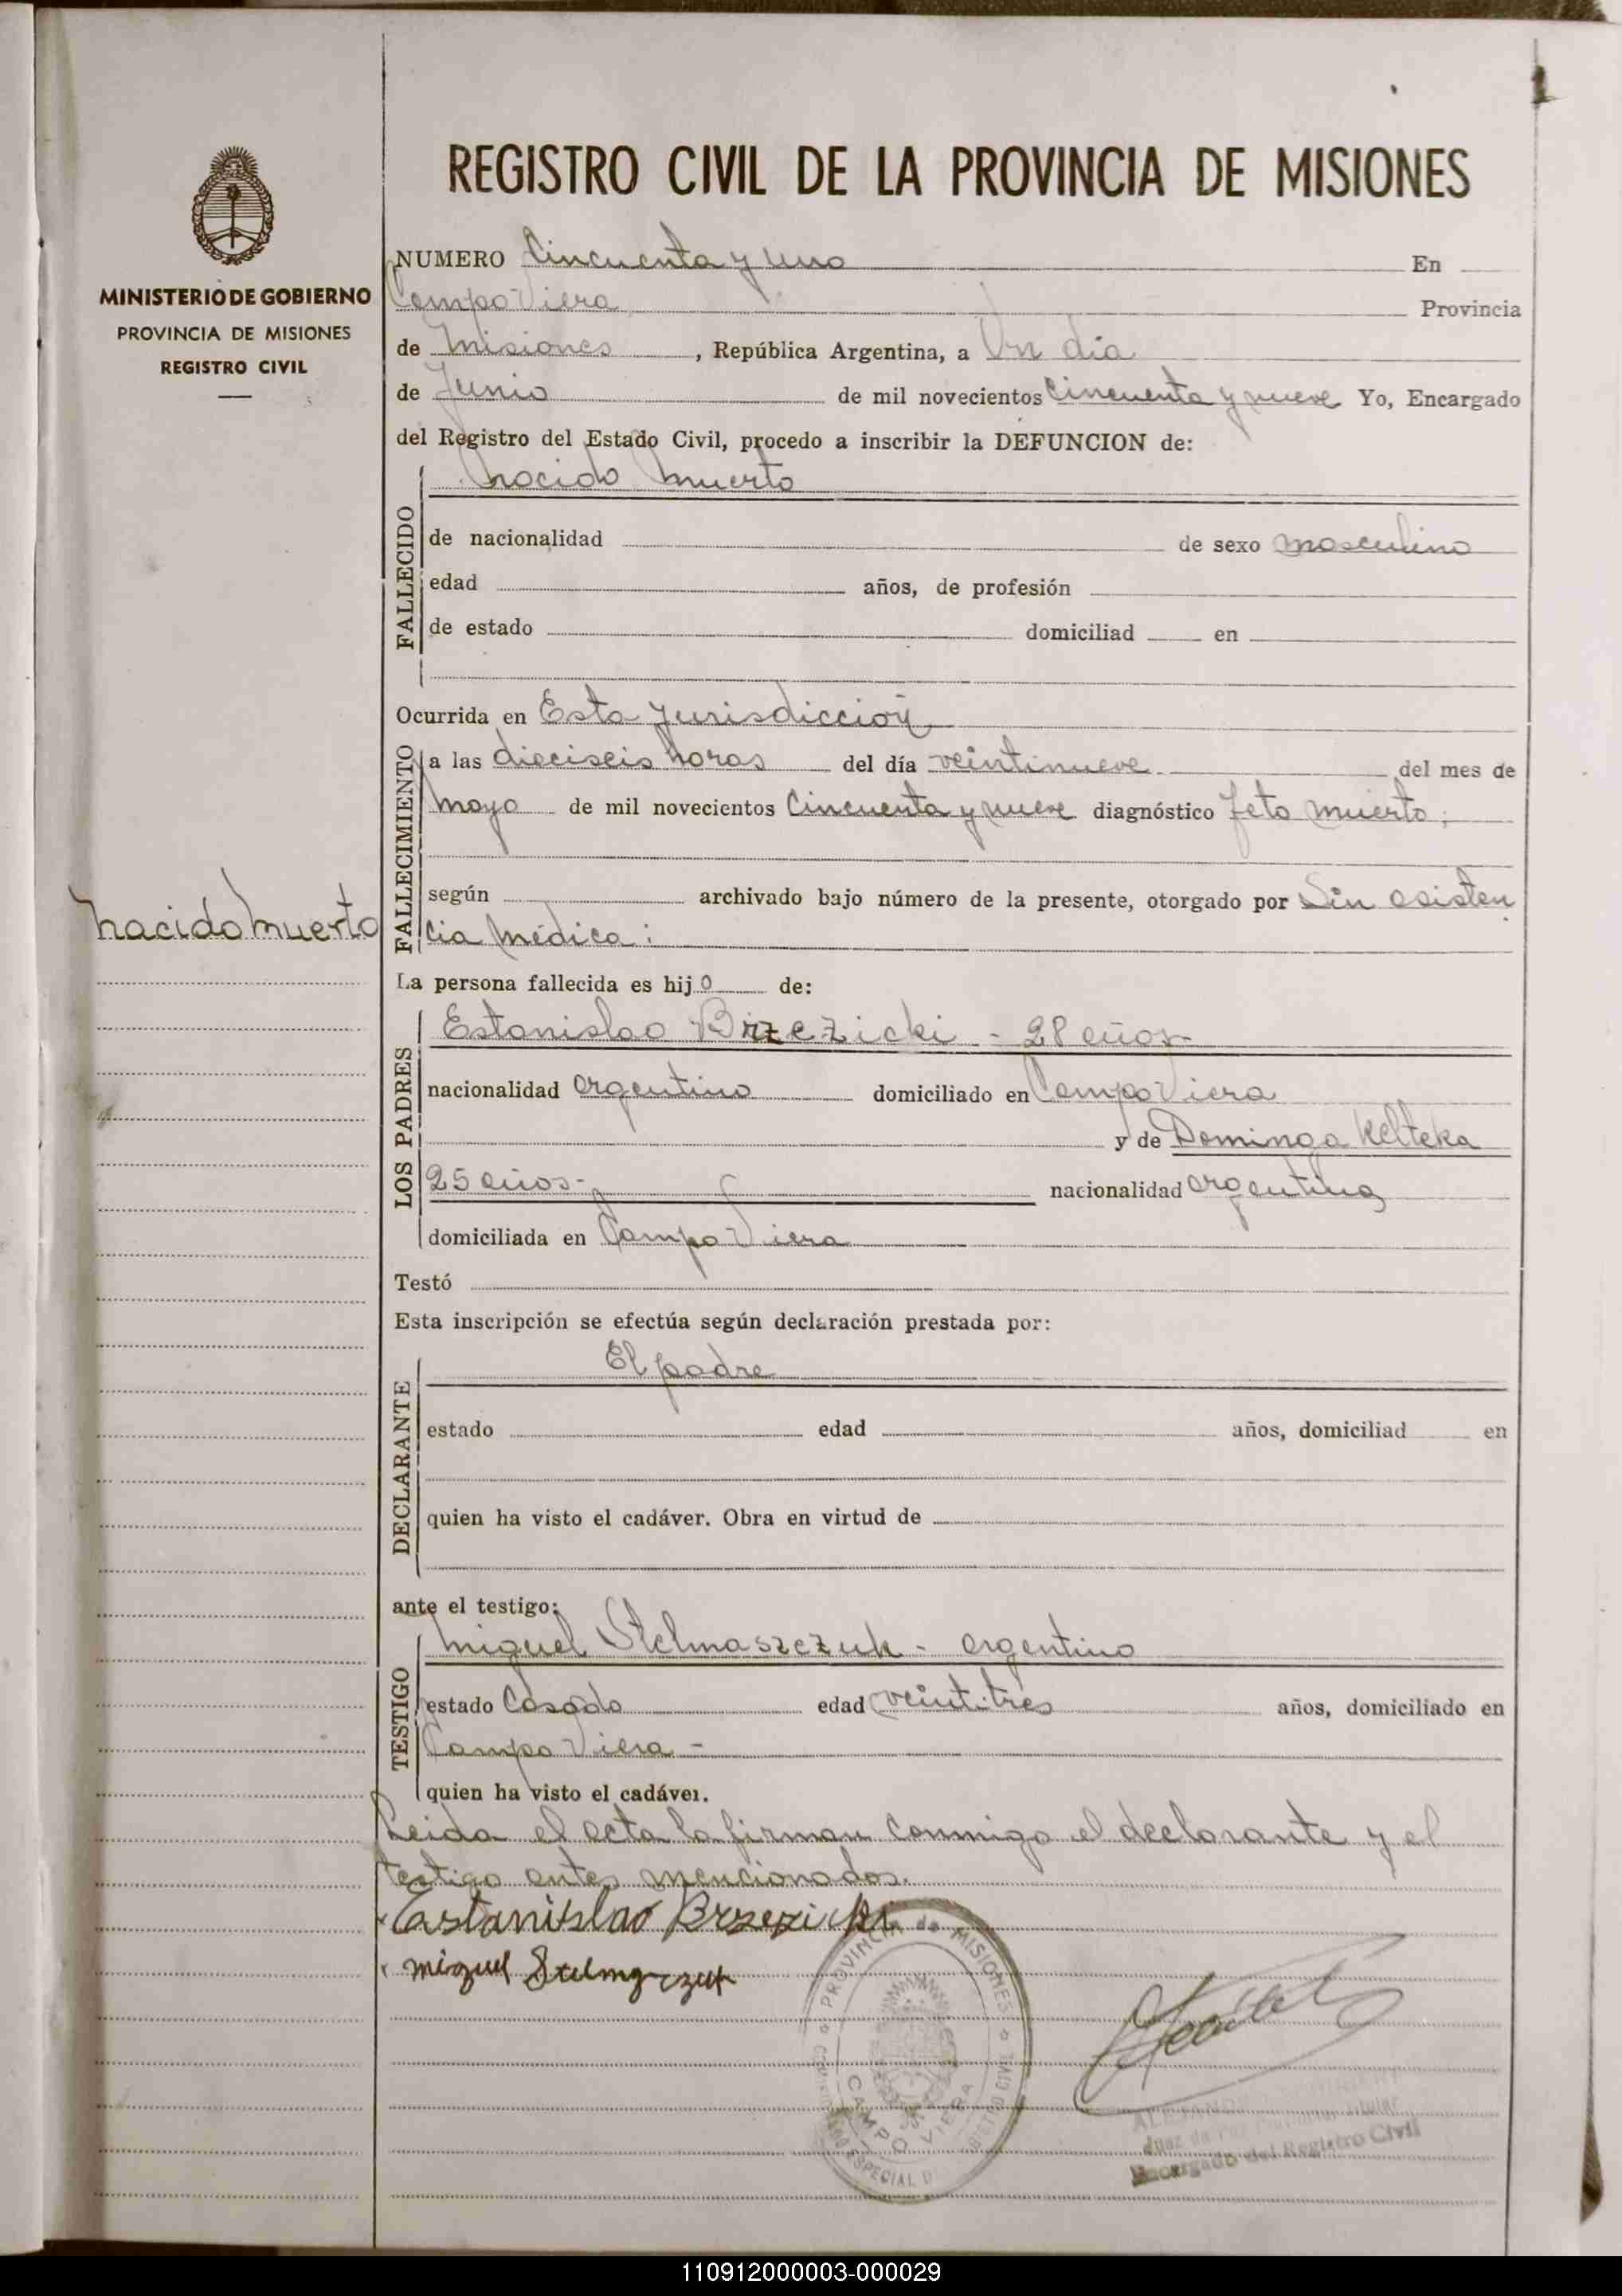 1
REGISTRO CIVIL DE LA PROVINCIA DE MISIONES
MINISTERIO DE GOBIERNO
PROVINCIA DE MISIONES
REGISTRO CIVIL
NUMERO Cincuenta y uno En
Campo Viera Provincia
de Misiones, República Argentina, a Un dia
de Junio de mil novecientos Cincuenta y nueve Yo, Encargado
del Registro del Estado Civil, procedo a inscribir la DEFUNCION de:
nacido muerto
FALLECIDO
de nacionalidad de sexo masculino
edad años, de profesión
de estado domiciliad en
Ocurrida en Esta Jurisdicción
FALLECIMIENTO
a las dieciseis horas del día veintinueve del mes de
mayo de mil novecientos Cincuenta y nueve diagnóstico feto muerto;
según archivado bajo número de la presente, otorgado por Sin asisten
cia médica:
nacido muerto
La persona fallecida es hijo de:
LOS PADRES
Estanislao Brzezicki - 28 años-
nacionalidad argentino domiciliado en Campo Viera
y de Dominga Kelteka
25 años- nacionalidad argentina
domiciliada en Campo Viera
Testó
Esta inscripción se efectúa según declaración prestada por:
El padre
DECLARANTE
estado edad años, domiciliad en
quien ha visto el cadáver. Obra en virtud de
ante el testigo:
TESTIGO
Miguel Stelmaszczuk - argentino
estado Casado edad veintitres años, domiciliado en
Campo Viera -
quien ha visto el cadáver.
Leida el acta la firman conmigo el declarante y el
testigo antes mencionados.
Estanislao Brzezicki
miguel
PROVINCIA de MISIONES
CAMPO VIERA
Encargado del Registro Civil
110912000003-000029